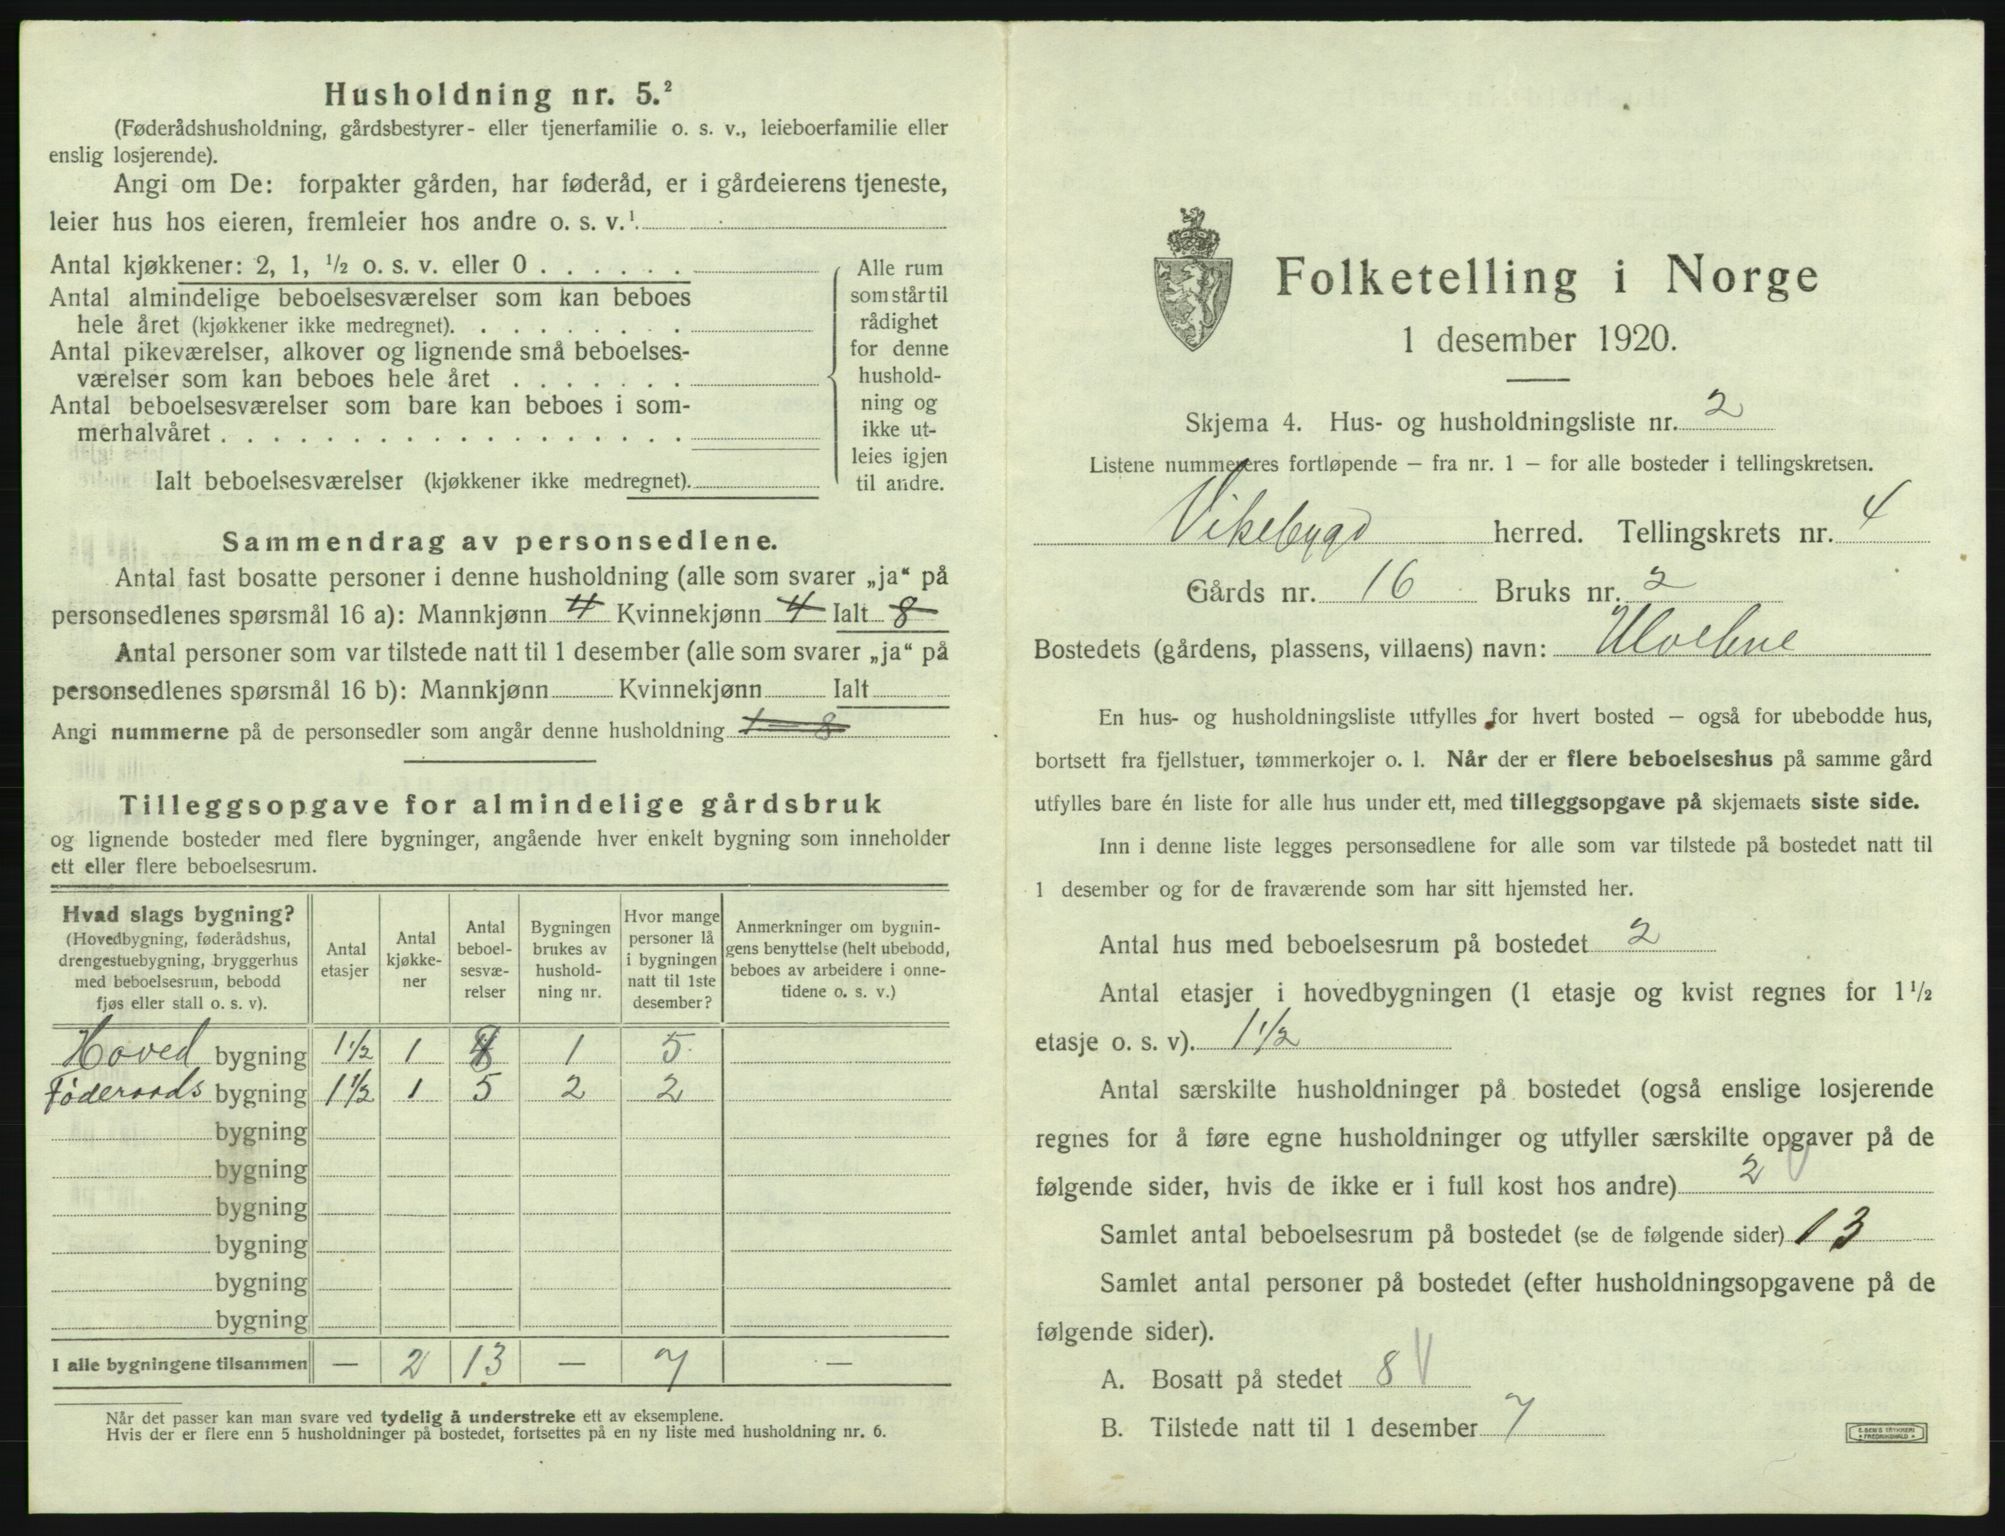 Husholdning nr. 5.²
(Føderådshusholdning, gårdsbestyrer- eller tjenerfamilie o. s. v., leieboerfamilie eller
enslig losjerende).
Angi om De: forpakter gården, har føderåd, er i gårdeierens tjeneste,
leier hus hos eieren, fremleier hos andre o. s. v.¹
Antal kjøkkener: 2, 1, ½ o. s. v. eller 0 . . . . . .
Antal almindelige beboelsesværelser som kan beboes
hele året (kjøkkener ikke medregnet). . . . . . . . .
Antal pikeværelser, alkover og lignende små beboelses-
værelser som kan beboes hele året . . . . . . .
Antal beboelsesværelser som bare kan beboes i som-
merhalvåret . . . . . . . . . . . . . . . . .
Ialt beboelsesværelser (kjøkkener ikke medregnet).
Alle rum
som står til
rådighet
for denne
hushold-
ning og
ikke ut-
leies igjen
til andre.
Sammendrag av personsedlene.
Antal fast bosatte personer i denne husholdning (alle som svarer „ja“ på
personsedlenes spørsmål 16 a): Mannkjønn 4 Kvinnekjønn 4 Ialt 8
Antal personer som var tilstede natt til 1 desember (alle som svarer „ja“ på
personsedlenes spørsmål 16 b): Mannkjønn Kvinnekjønn Ialt
Angi nummerne på de personsedler som angår denne husholdning 1—8
Tilleggsopgave for almindelige gårdsbruk
og lignende bosteder med flere bygninger, angående hver enkelt bygning som inneholder
ett eller flere beboelsesrum.
Hvad slags bygning?
(Hovedbygning, føderådshus,
drengestuebygning, bryggerhus
med beboelsesrum, bebodd
fjøs eller stall o. s. v).
Antal
etasjer
Antal
kjøkke-
ner
Antal
beboel-
sesvæ-
relser
Bygningen
brukes av
hushold-
ning nr.
Hvor mange
personer lå
i bygningen
natt til 1ste
desember?
Anmerkninger om bygnin-
gens benyttelse (helt ubebodd,
beboes av arbeidere i onne-
tidene o. s. v.)
Hoved bygning 1½ 1 8 1 5
Føderaads bygning 1½ 1 5 2 2
bygning
bygning
bygning
bygning
bygning
bygning
I alle bygningene tilsammen — 2 13 — 7 —
Når det passer kan man svare ved tydelig å understreke ett av eksemplene.
Hvis der er flere enn 5 husholdninger på bostedet, fortsettes på en ny liste med husholdning nr. 6.
Folketelling i Norge
1 desember 1920.
Skjema 4. Hus- og husholdningsliste nr. 2
Listene nummereres fortløpende — fra nr. 1 — for alle bosteder i tellingskretsen.
Vikebygd herred. Tellingskrets nr. 4
Gårds nr. 16 Bruks nr. 2
Bostedets (gårdens, plassens, villaens) navn:
En hus- og husholdningsliste utfylles for hvert bosted — også for ubebodde hus,
bortsett fra fjellstuer, tømmerkojer o. l. Når der er flere beboelseshus på samme gård
utfylles bare én liste for alle hus under ett, med tilleggsopgave på skjemaets siste side.
Inn i denne liste legges personsedlene for alle som var tilstede på bostedet natt til
1 desember og for de fraværende som har sitt hjemsted her.
Antal hus med beboelsesrum på bostedet 2
Antal etasjer i hovedbygningen (1 etasje og kvist regnes for 1½
etasje o. s. v). 1½
Antal særskilte husholdninger på bostedet (også enslige losjerende
regnes for å føre egne husholdninger og utfyller særskilte opgaver på de
følgende sider, hvis de ikke er i full kost hos andre) 2
Samlet antal beboelsesrum på bostedet (se de følgende sider) 13
Samlet antal personer på bostedet (efter husholdningsopgavene på de
følgende sider).
A. Bosatt på stedet 8
B. Tilstede natt til 1 desember 7